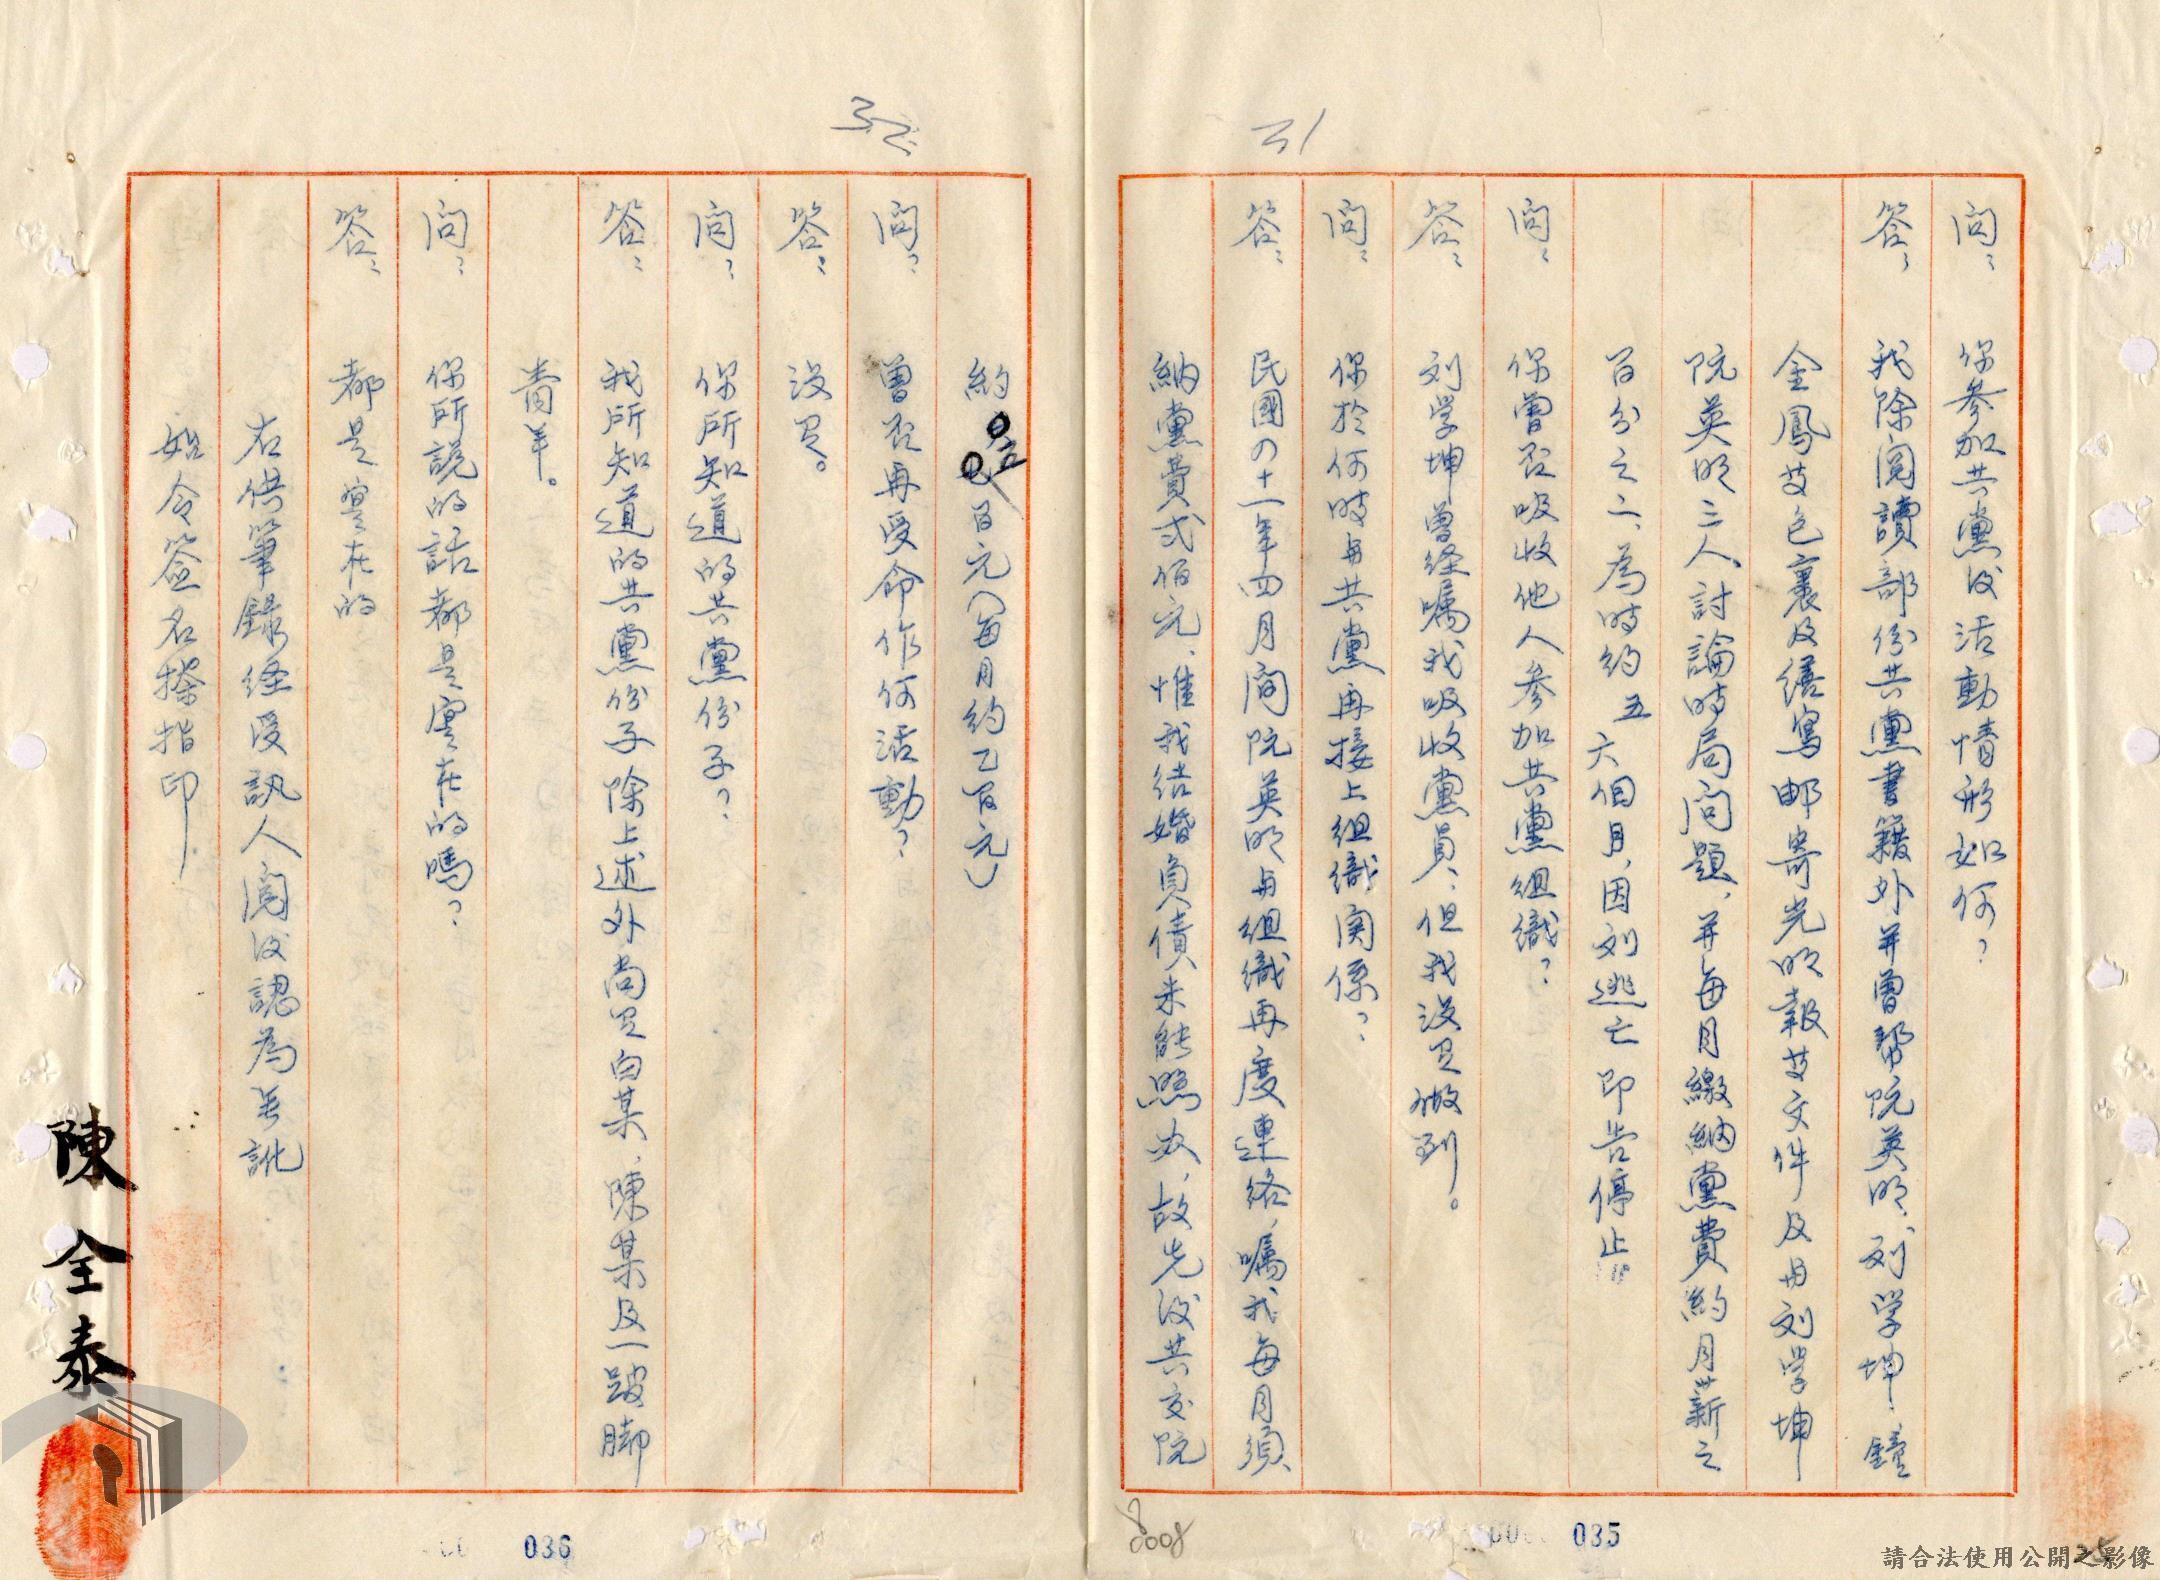 31
問：你參加共黨後活動情形如何？
答：我除閱讀部份共黨書籍外并曾帮阮英明、刘学坤、鐘
金鳳芰包裹及繕寫邮寄光明報芰文件及与刘学坤
阮英明三人討論時局問題，并每月繳納黨費約月薪之
百分之二、為時約五六個月，因刘逃亡即告停止
問：你曾否吸收他人參加共黨組織？
答：刘学坤曾経嘱我吸收黨員、但我沒有做到。
問：你於何時与共黨再接上組織関係？
答：民國四十一年四月間阮英明与組織再度連絡，嘱我每月須
納黨費弍佰元、惟我结婚負债未能照办，故先後共交阮
8008
035
32
約五百元（每月約乙百元）
問：曾否再受命作何活動？
答：没有。
問：你所知道的共黨份子？
答：我所知道的共黨份子除上述外尚有白某、陳某及一跛脚
青年。
問：你所說的話都是寔在的嗎？
答：都是寔在的
右供筆錄经受訊人閱後認為無訛
始令簽名捺指印
陳全泰
036
請合法使用公開之影像